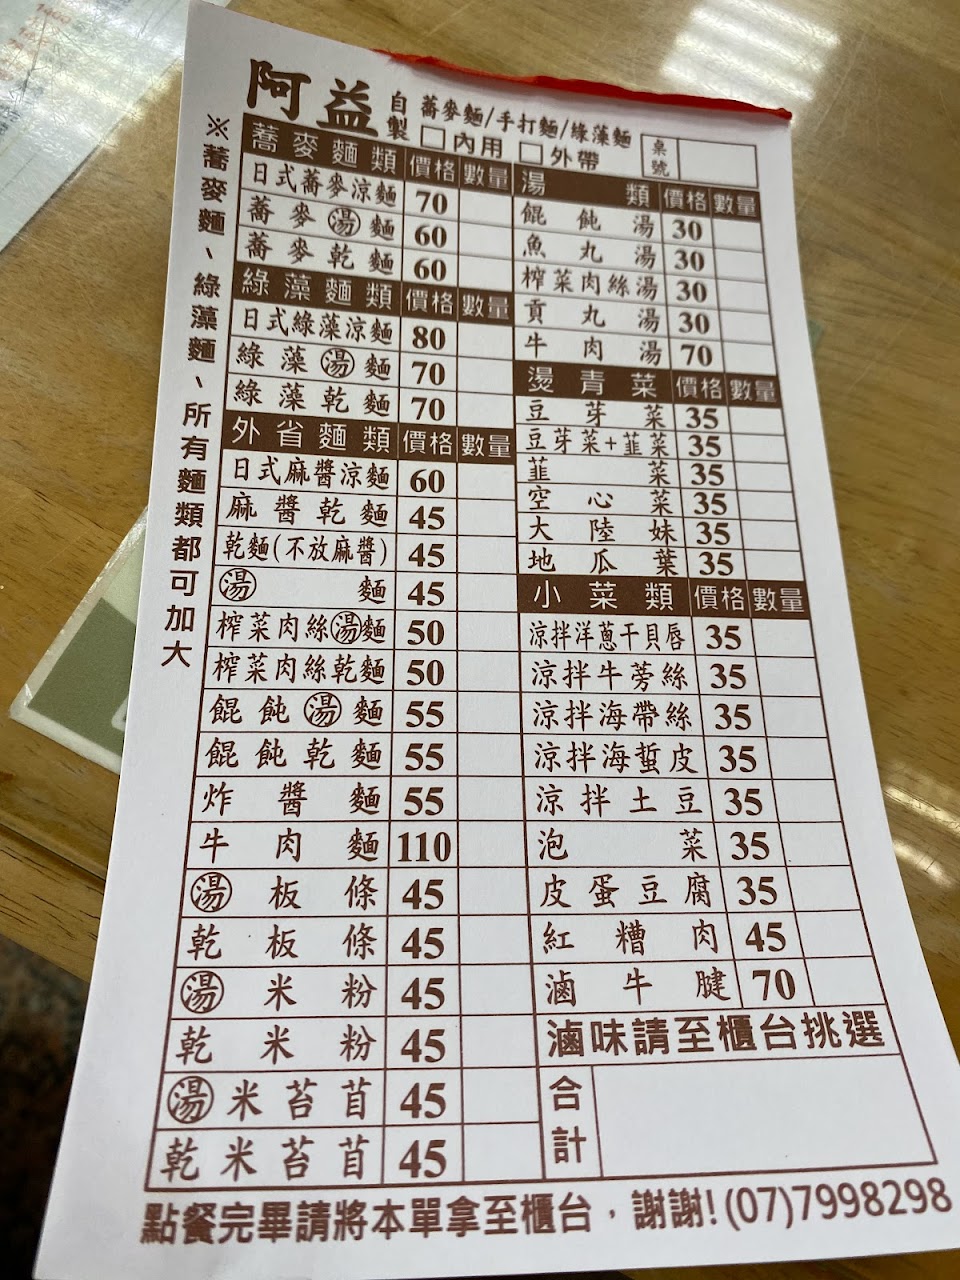 阿益 自製 蕎麥麵/手打麵/綠藻麵
□內用 □外帶 桌號
※蕎麥麵、綠藻麵、所有麵類都可加大
蕎麥麵類 價格 數量
日式蕎麥涼麵 70
蕎麥湯麵 60
蕎麥乾麵 60
綠藻麵類 價格 數量
日式綠藻涼麵 80
綠藻湯麵 70
綠藻乾麵 70
外省麵類 價格 數量
日式麻醬涼麵 60
麻醬乾麵 45
乾麵(不放麻醬) 45
湯麵 45
榨菜肉絲湯麵 50
榨菜肉絲乾麵 50
餛飩湯麵 55
餛飩乾麵 55
炸醬麵 55
牛肉麵 110
湯板條 45
乾板條 45
湯米粉 45
乾米粉 45
湯米苔苜 45
乾米苔苜 45
湯類 價格 數量
餛飩湯 30
魚丸湯 30
榨菜肉絲湯 30
貢丸湯 30
牛肉湯 70
燙青菜 價格 數量
豆芽菜 35
豆芽菜+韮菜 35
韮菜 35
空心菜 35
大陸妹 35
地瓜葉 35
小菜類 價格 數量
涼拌洋蔥干貝唇 35
涼拌牛蒡絲 35
涼拌海帶絲 35
涼拌海蜇皮 35
涼拌土豆 35
泡菜 35
皮蛋豆腐 35
紅糟肉 45
滷牛腱 70
滷味請至櫃台挑選
合計
點餐完畢請將本單拿至櫃台，謝謝!(07)7998298